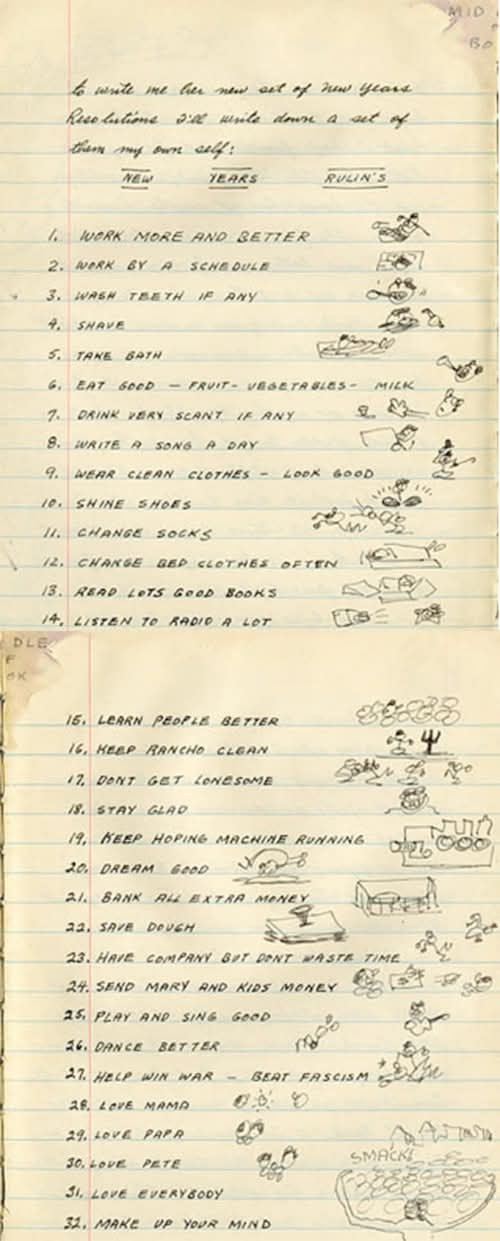 MID
BO
to write me her new set of New Years
Resolutions I'll write down a set of
them my own self:
NEW YEARS RULIN'S
1. WORK MORE AND BETTER
2. WORK BY A SCHEDULE
3. WASH TEETH IF ANY
4. SHAVE
5. TAKE BATH
6. EAT GOOD — FRUIT - VEGETABLES - MILK
7. DRINK VERY SCANT IF ANY
8. WRITE A SONG A DAY
9. WEAR CLEAN CLOTHES — LOOK GOOD
10. SHINE SHOES
11. CHANGE SOCKS
12. CHANGE BED CLOTHES OFTEN
13. READ LOTS GOOD BOOKS
14. LISTEN TO RADIO A LOT
DLE
F
OK
15. LEARN PEOPLE BETTER
16. KEEP RANCHO CLEAN
17. DONT GET LONESOME
18. STAY GLAD
19. KEEP HOPING MACHINE RUNNING
20. DREAM GOOD
21. BANK ALL EXTRA MONEY
22. SAVE DOUGH
23. HAVE COMPANY BUT DONT WASTE TIME
24. SEND MARY AND KIDS MONEY
25. PLAY AND SING GOOD
26. DANCE BETTER
27. HELP WIN WAR — BEAT FASCISM
28. LOVE MAMA
29. LOVE PAPA
30. LOVE PETE
SMACK!
31. LOVE EVERYBODY
32. MAKE UP YOUR MIND